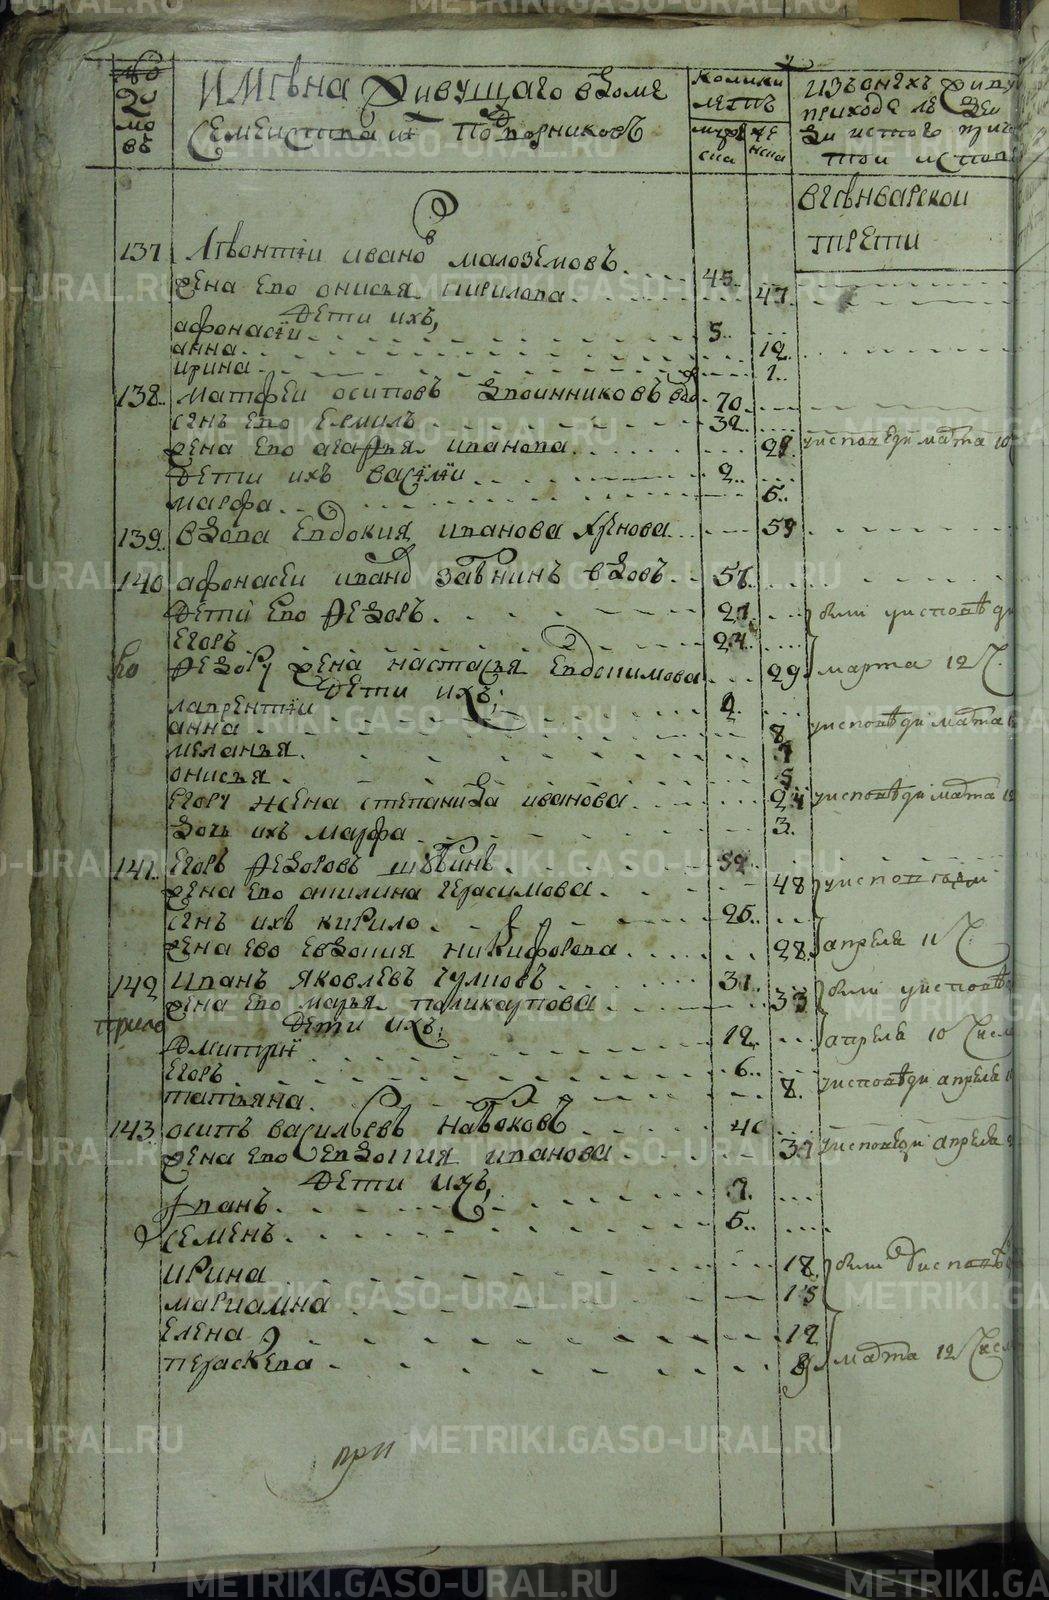 METRIKI.GASO-URAL.RU
№ домовъ
имѣна живущаго в доме
семеиства и подворниковъ
колики
летъ
мужеска
женска
изъ онехъ живу
приходе ле
тои испо
вгѣнварскои
трети
137 Лѣвонтии ивано малоземовъ 45
жена ево онисья кирилова 47
Дети ихъ,
афонасïи 5
анна 12
ирина 1
138 матфеи осиповъ воинниковъ вдо 70
сенъ ево ермилъ 32
жена ево агафья иванова 28 уисповеди марта 10
Дети ихъ васïлïи 2
марфа 6
139 вдова Евдокия иванова 59
140 афонасеи ивано вдовъ 57
Дети ево Федоръ 27 были уисповѣди
Егоръ 24
Федору жена настасья Евдокимова 29 марта 12 Ч.
Дети ихъ;
лаврентïи 2
анна 8 уисповѣди марта
меланья 7
онисья 5
Егору жена степанида иванова 24 уисповѣди марта 12
дочь ихъ марфа 3
141 Егоръ Федоровъ 52
жена ево акилина герасимова 48 уисповеди
сенъ ихъ кирило 25
жена ево евдокия никифорова 28 апреля 11 Ч.
142 иванъ яковлевъ 31 были уисповѣ
жена ево марья поликарпова 33
Дети ихъ;
Дмитрïи 12 апреля 10 Числ
Егоръ 6
татьяна 8 уисповѣди апреля
143 осипъ васильевъ набоковъ 40
жена ево Евдокия иванова 37 уисповеди апреля
Дети ихъ,
иванъ 7
семенъ 5
ирина 18 были уисповѣ
мариамна 15
елена 12
пераскева 8 марта 12 Числ
при